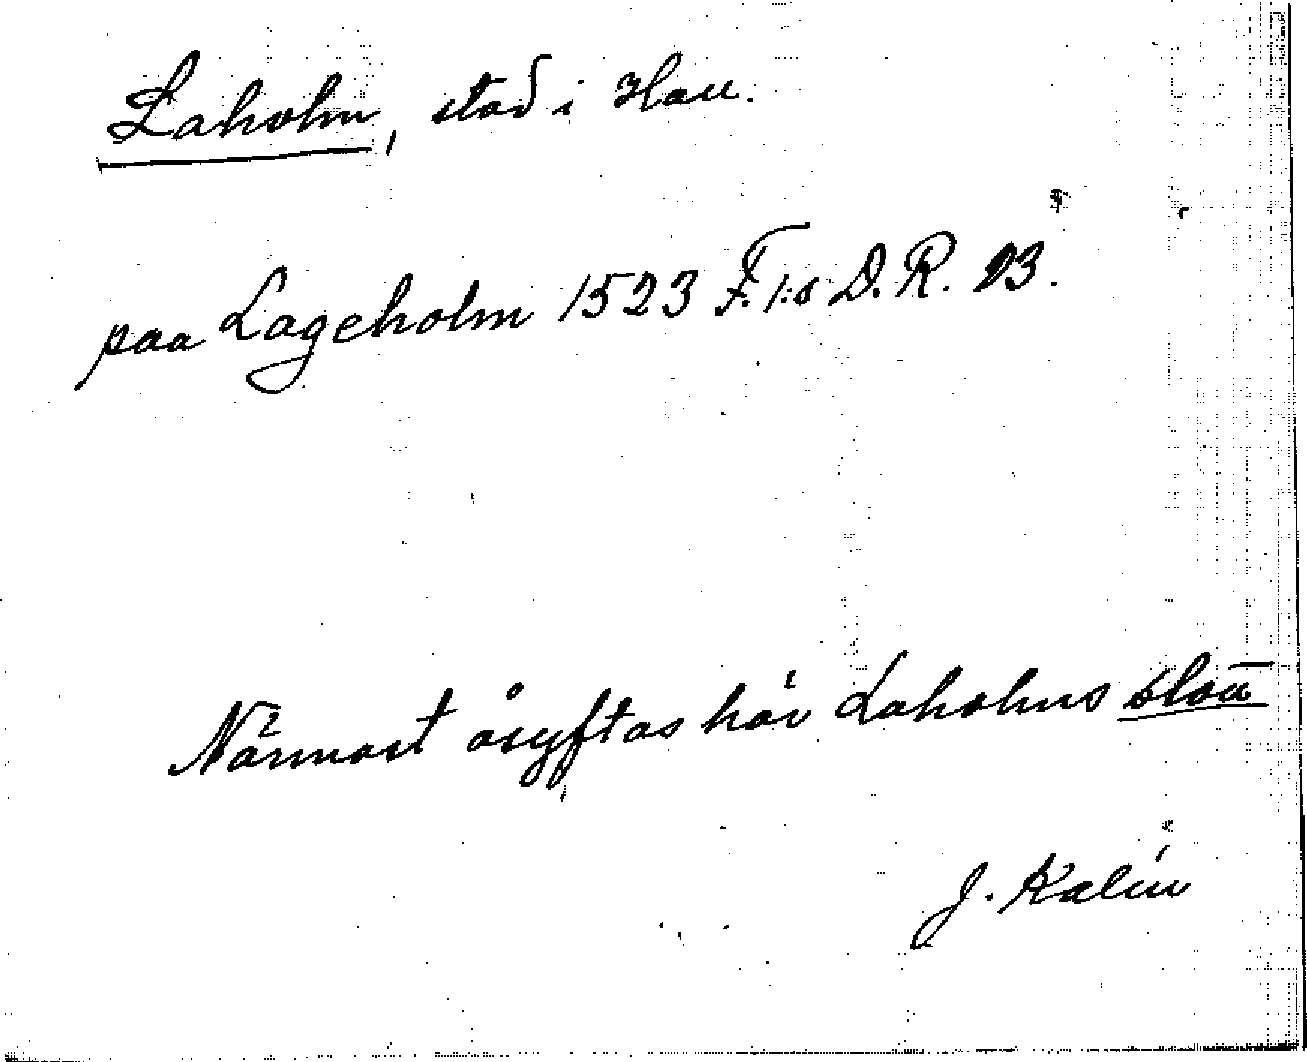 Laholm, stad i Hall.
paa Lageholm 1523 F. I:s D.R. 23.
Närmast åsyftas här Laholms slott
J. Kalén